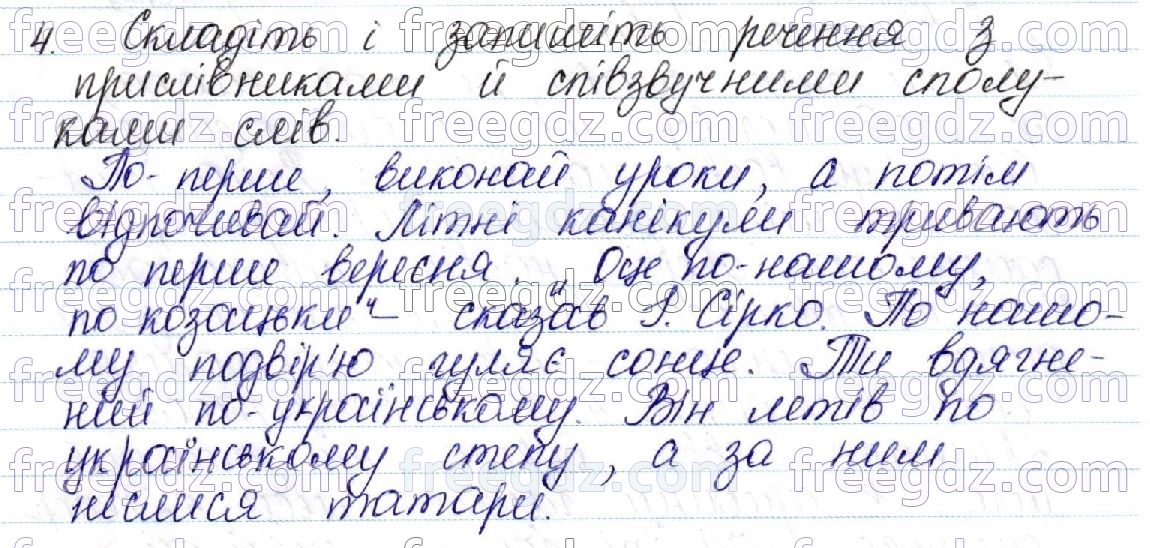 4. Складіть і запишіть речення з
прислівниками й співзвучними сполу-
ками слів.
По-перше, виконай уроки, а потім
відпочивай. Літні канікули тривають
по перше вересня. "Оце по-нашому,
по козацьки" - сказав І. Сірко. По нашо-
му подвір'ю гуляє сонце. Ти вдягне-
ний по-українському. Він летів по
українському степу, а за ним
неслися татари.